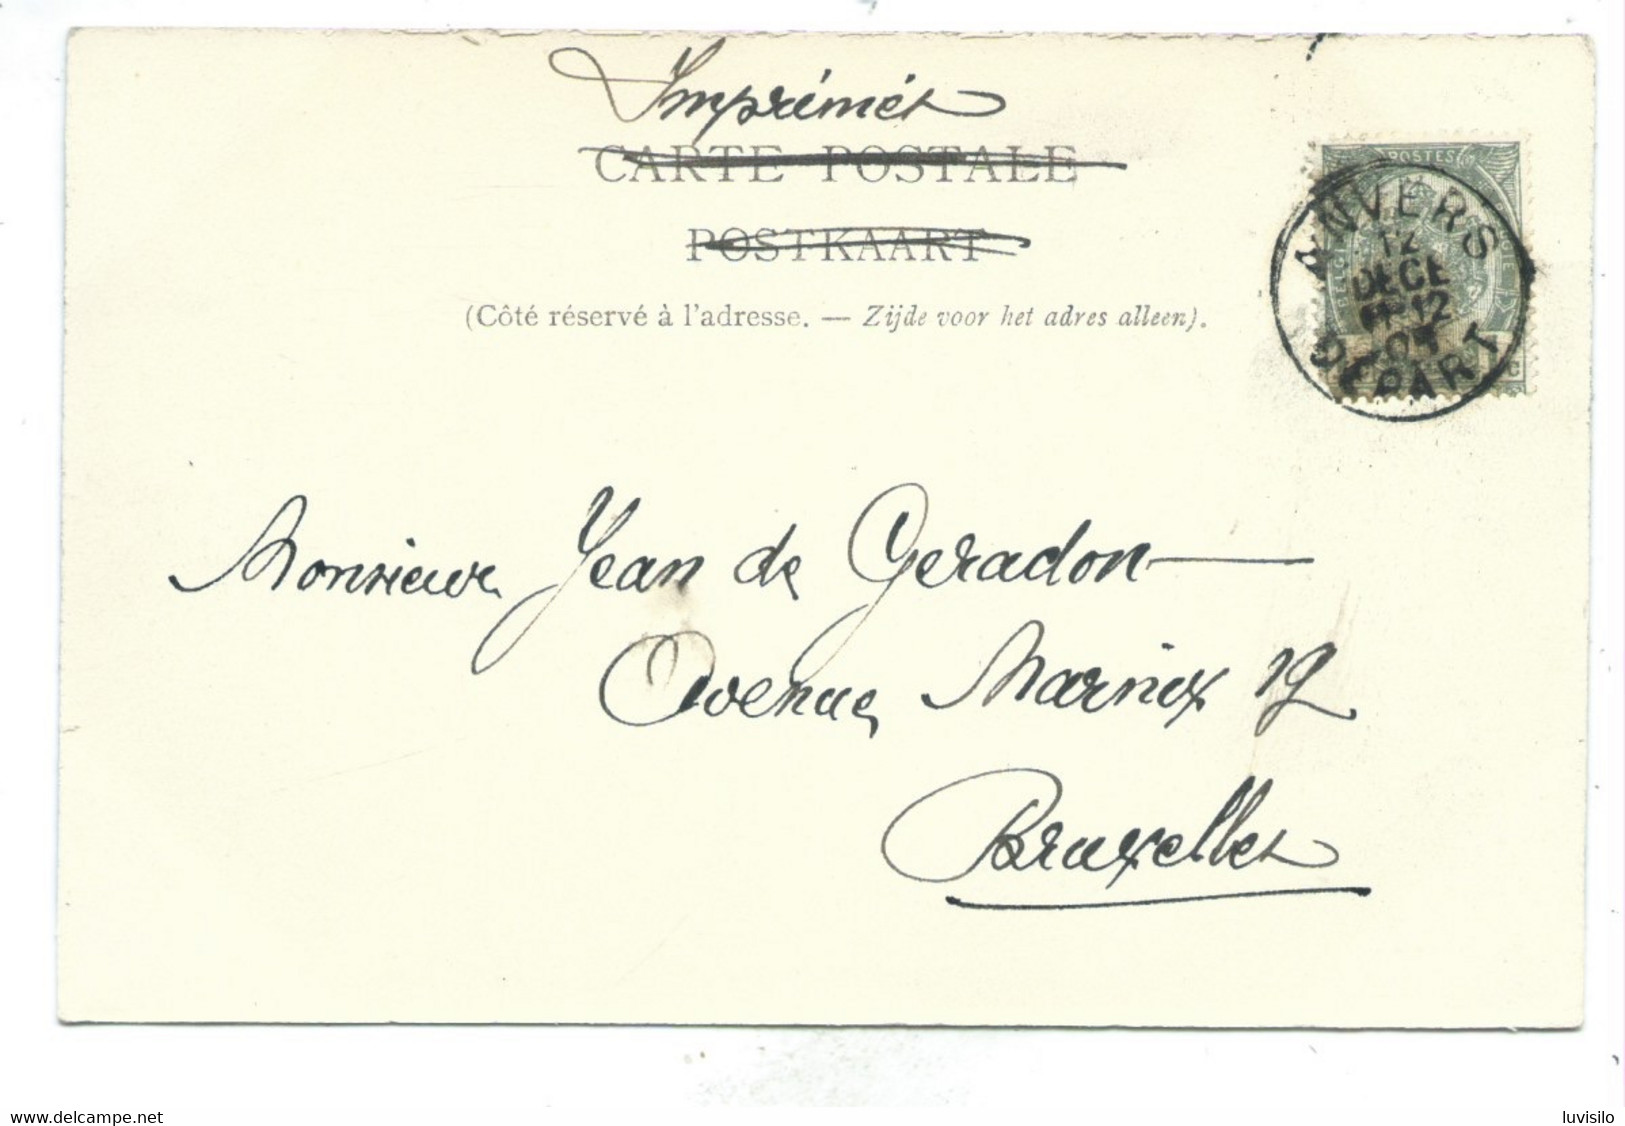 Imprimés
CARTE POSTALE
POSTKAART
(Côté réservé à l'adresse. — Zijde voor het adres alleen).
POSTES
ANVERS
12
DECE
11-12
DEPART
Monsieur Jean de Geradon
Avenue Marnix 19
Bruxelles
www.delcampe.net
luvisilo